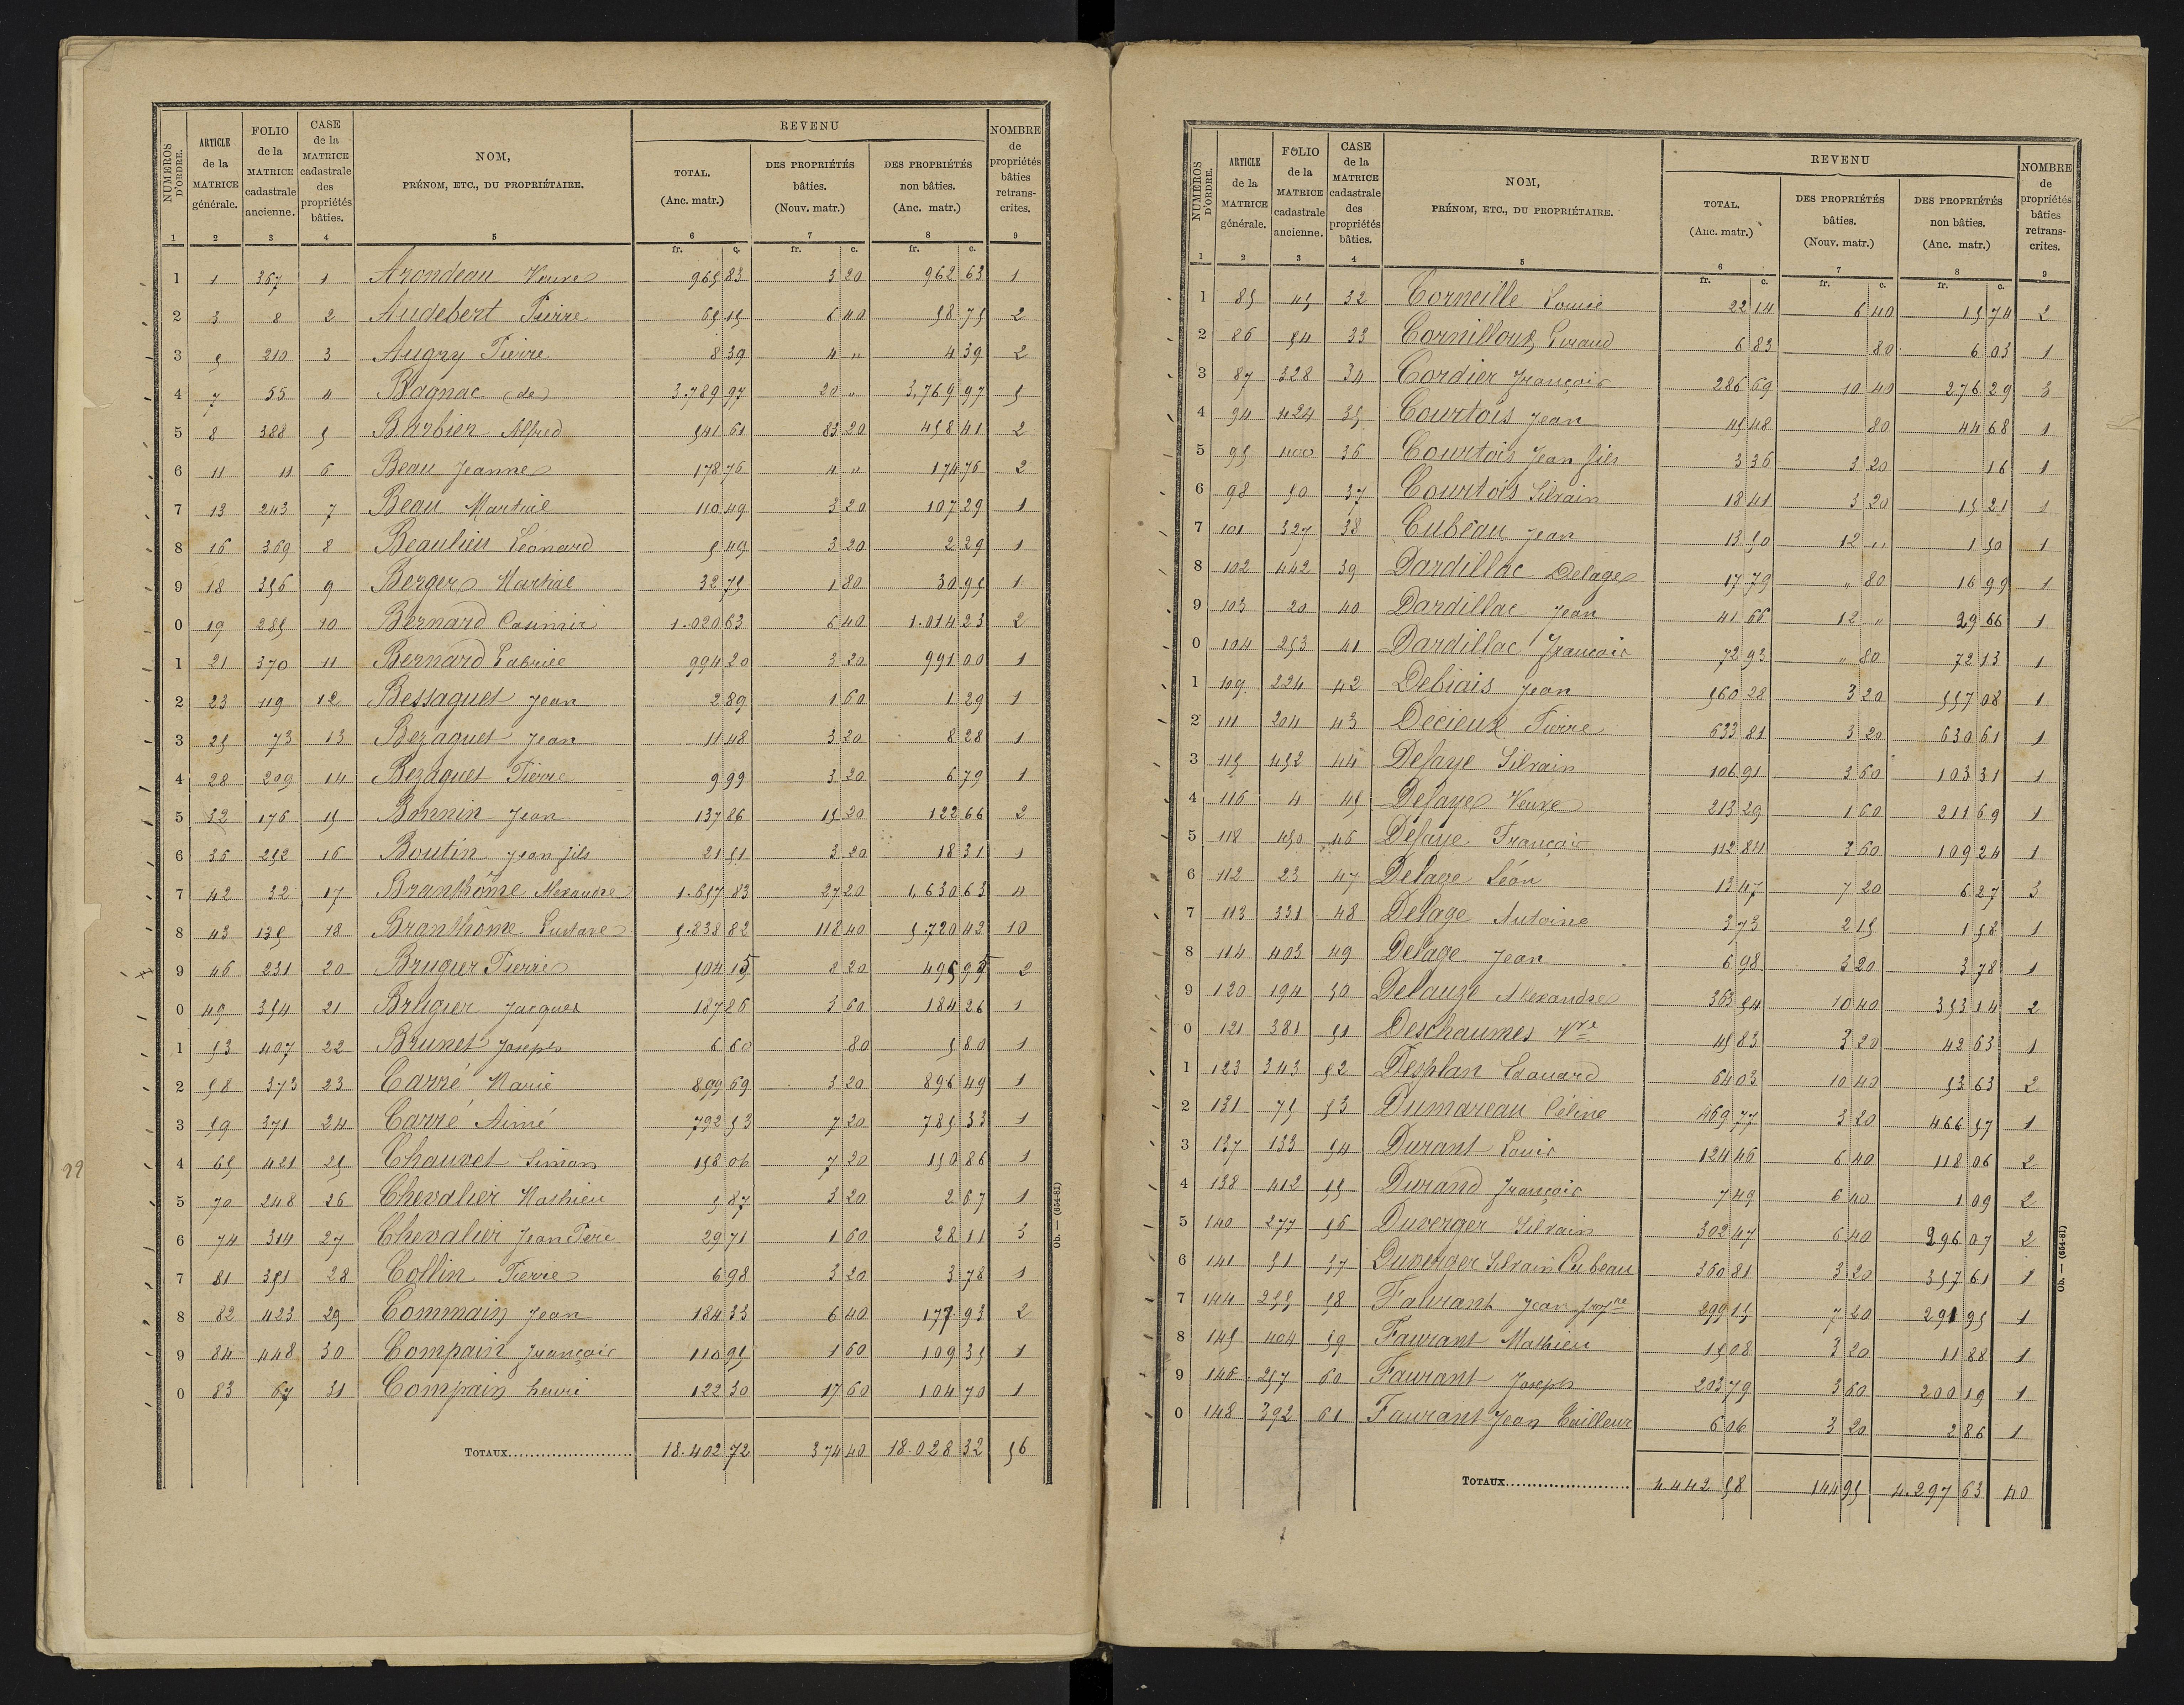 NUMEROS D'ORDRE. | ARTICLE de la MATRICE générale. | FOLIO de la MATRICE cadastrale ancienne. | CASE de la MATRICE cadastrale des propriétés bâties. | NOM, PRÉNOM, ETC., DU PROPRIÉTAIRE. | REVENU TOTAL. (Anc. matr.) | DES PROPRIÉTÉS bâties. (Nouv. matr.) | DES PROPRIÉTÉS non bâties. (Anc. matr.) | NOMBRE de propriétés bâties retrans- crites.
1 2 3 4 5 6 7 8 9
fr. c. fr. c. fr. c.
1 1 367 1 Arondeau Veuve 965 83 3 20 962 63 1
2 3 8 2 Audebert Pierre 65 15 6 40 58 75 2
3 5 210 3 Augry Pierre 8 39 4 " 4 39 2
4 7 55 4 Bagnac (de) 3.789 97 20 " 3,769 97 5
5 8 388 5 Barbier Alfred 541 61 83 20 458 41 2
6 11 11 6 Beau Jeanne 178 76 4 " 174 76 2
7 13 243 7 Beau Martial 110 49 3 20 107 29 1
8 16 369 8 Beaulieu Léonard 5 49 3 20 2 29 1
9 18 356 9 Berger Martial 32 75 1 80 30 95 1
0 19 285 10 Bernard Casimir 1.020 63 6 40 1.014 23 2
1 21 370 11 Bernard Gabriel 994 20 3 20 991 00 1
2 23 119 12 Bessaguet Jean 2 89 1 60 1 29 1
3 25 73 13 Bezaguet Jean 11 48 3 20 8 28 1
4 28 209 14 Bezaguet Pierre 9 99 3 20 6 79 1
5 32 176 15 Bonnin Jean 137 86 15 20 122 66 2
6 36 252 16 Boutin Jean fils 21 51 3 20 18 31 1
7 42 32 17 Branthôme Alexandre 1.657 83 27 20 1,630 63 4
8 43 135 18 Branthôme Gustave 5.838 82 118 40 5.720 42 10
9 46 231 20 Brugier Pierre 504 15 8 20 495 95 2
0 49 354 21 Brugier Jacques 187 86 3 60 184 26 1
1 53 407 22 Brunet Joseph 6 60 80 5 80 1
2 58 373 23 Carré Marie 899 69 3 20 896 49 1
3 59 371 24 Carré Aimé 792 53 7 20 785 33 1
4 65 421 25 Chauvet Simon 158 06 7 20 150 86 1
5 70 248 26 Chevalier Mathieu 5 87 3 20 2 67 1
6 74 314 27 Chevalier Jean Père 29 71 1 60 28 11 3
7 81 351 28 Collin Pierre 6 98 3 20 3 78 1
8 82 423 29 Commain Jean 184 33 6 40 177 93 2
9 84 448 30 Compain François 110 95 1 60 109 35 1
0 83 67 31 Compain henri 122 30 17 60 104 70 1
TOTAUX 18.402 72 374 40 18.028 32 56
Ob. — (654-81)
22
NUMEROS D'ORDRE. | ARTICLE de la MATRICE générale. | FOLIO de la MATRICE cadastrale ancienne. | CASE de la MATRICE cadastrale des propriétés bâties. | NOM, PRÉNOM, ETC., DU PROPRIÉTAIRE. | REVENU TOTAL. (Anc. matr.) | DES PROPRIÉTÉS bâties. (Nouv. matr.) | DES PROPRIÉTÉS non bâties. (Anc. matr.) | NOMBRE de propriétés bâties retrans- crites.
1 2 3 4 5 6 7 8 9
fr. c. fr. c. fr. c.
1 85 45 32 Corneille Louis 22 14 6 40 15 74 2
2 86 54 33 Cornilloux 6 83 80 6 03 1
3 87 328 34 Cordier François 286 69 10 40 276 29 3
4 94 424 35 Courtois Jean 45 48 80 44 68 1
5 95 400 36 Courtois Jean fils 3 36 3 20 16 1
6 98 50 37 Courtois Silvain 18 41 3 20 15 21 1
7 101 327 38 Cubeau Jean 13 50 12 " 1 50 1
8 102 442 39 Dardillac Delage 17 79 " 80 16 99 1
9 103 20 40 Dardillac Jean 41 66 12 " 29 66 1
0 104 253 41 Dardillac François 72 93 " 80 72 13 1
1 109 224 42 Debiais Jean 560 28 3 20 557 08 1
2 111 204 43 Décieux Pierre 633 81 3 20 630 61 1
3 115 452 44 Defaye Silvain 106 91 3 60 103 31 1
4 116 4 45 Defaye Veuve 213 29 1 60 211 69 1
5 118 450 46 Défaye François 112 84 3 60 109 24 1
6 112 23 47 Delage Léon 13 47 7 20 6 27 3
7 113 331 48 Delage Antoine 3 73 2 15 1 58 1
8 114 403 49 Delage Jean 6 98 3 20 3 78 1
9 120 194 50 Delauze Alexandre 363 54 10 40 353 14 2
0 121 381 51 Deschaumes Vve 45 83 3 20 42 63 1
1 123 343 52 Desplan Edouard 64 03 10 40 53 63 2
2 131 75 53 Dumareau Céline 469 77 3 20 466 57 1
3 137 133 54 Durant Louis 124 46 6 40 118 06 2
4 138 412 55 Durand François 7 49 6 40 1 09 2
5 140 277 56 Duverger Silvain 302 47 6 40 296 07 2
6 141 51 57 Duverger Silvain Cubeau 360 81 3 20 357 61 1
7 144 255 58 Faurant Jean 299 15 7 20 291 95 1
8 145 404 59 Faurant Mathieu 15 08 3 20 11 88 1
9 146 257 60 Faurant Joseph 203 79 3 60 200 19 1
0 148 392 61 Faurant Jean Tailleur 6 06 3 20 2 86 1
TOTAUX 4.442 58 144 95 4.297 63 40
Ob. — (654-81)